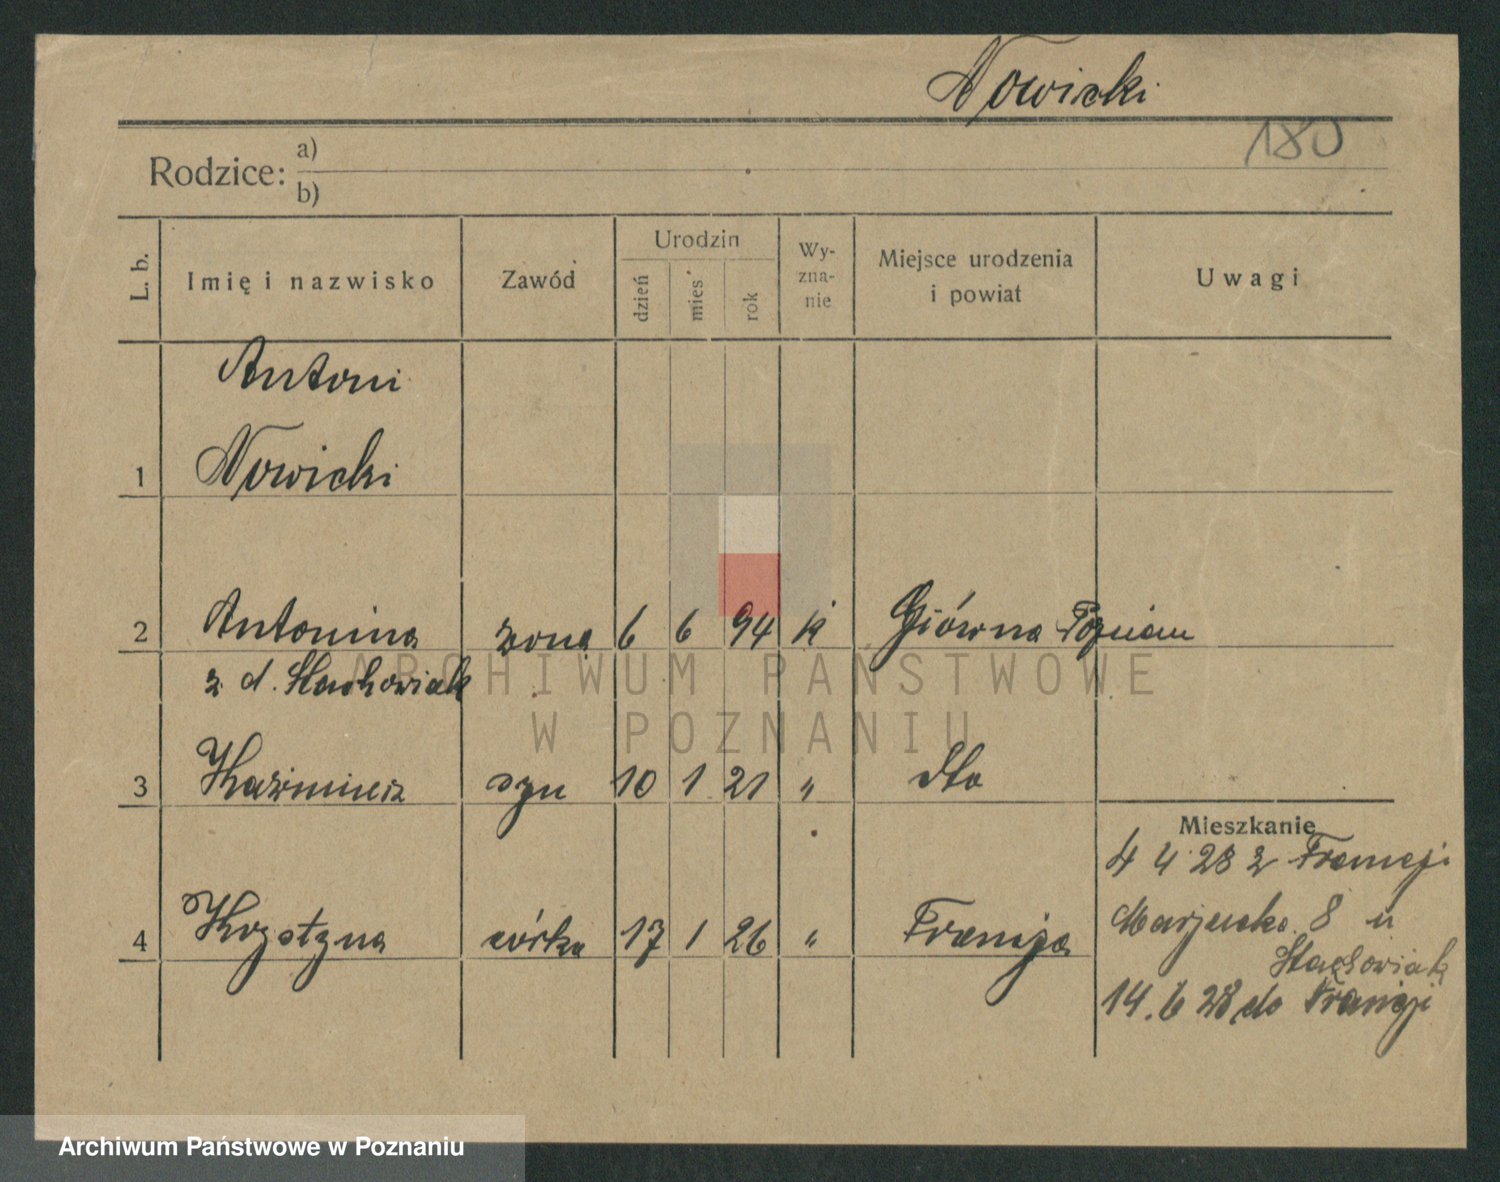 Nowicki
180
Rodzice: a)
b)
L. b. Imię i nazwisko Zawód Urodzin dzień mies' rok Wy-zna-nie Miejsce urodzenia i powiat Uwagi
Antoni
1 Nowicki
2 Antonina żona 6 6 94 k Główna Poznań
z d. Stachowiak
ARCHIWUM PAŃSTWOWE
W POZNANIU
3 Kazimierz syn 10 1 21 " dto
Mieszkanie
4 4 28 z Francji
4 Krystyna córka 17 1 26 " Francja
8 u
Stachowiak
14.6 28 do Francji
Archiwum Państwowe w Poznaniu